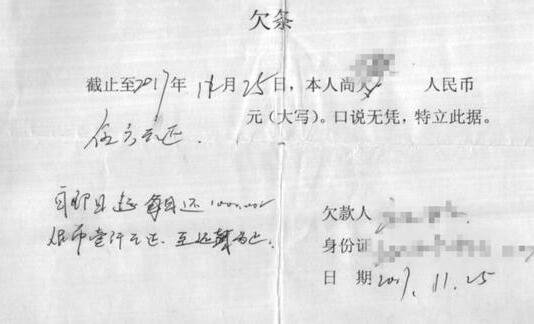 欠条
截止至2017年 11月25日,本人尚欠 人民币
元(大写)。口说无凭,特立此据。
伍万元正.
自即日起每月还1000.00
人民币壹仟元正.至还清为止.
欠款人
身份证
日 期 2017.11.25